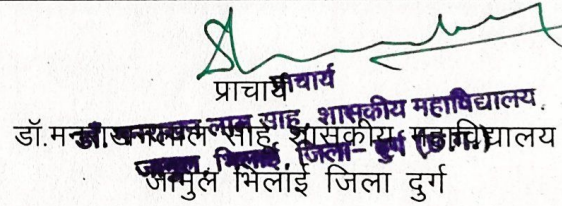 प्राचार्य
प्राचार्य
डॉ. मनराखन लाल साहू, शासकीय महाविद्यालय
जामुल, भिलाई, जिला- दुर्ग (छ.ग.)
डॉ.मनराखनलाल साहू शासकीय महाविद्यालय
जामुल भिलाई जिला दुर्ग